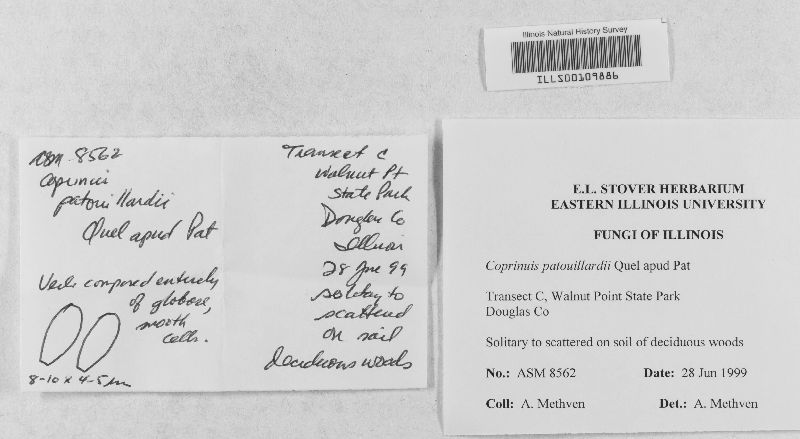 Illinois Natural History Survey
ILLS00109886
ASM 8562
Coprinus
patouillardii
Quel apud Pat
Veil composed entirely
of globose,
smooth
cells.
8-10 x 4-5 µm
Transect C
Walnut Pt
State Park
Douglas Co
Illinois
28 June 99
solitary to
scattered
on soil
deciduous woods
E.L. STOVER HERBARIUM
EASTERN ILLINOIS UNIVERSITY
FUNGI OF ILLINOIS
Coprinuis patouillardii Quel apud Pat
Transect C, Walnut Point State Park
Douglas Co
Solitary to scattered on soil of deciduous woods
No.: ASM 8562 Date: 28 Jun 1999
Coll: A. Methven Det.: A. Methven